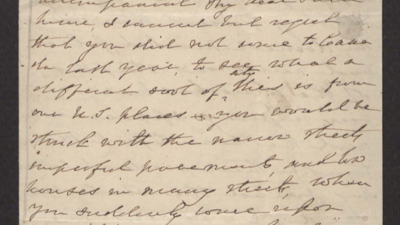 my dear
more, I cannot but regret
that you did not come to
in last year, to see what a
different sort of city this is from
our U.S. places - you would be
struck with the narrow streets
imperfect pavement, and low
houses in many streets, when
you suddenly come upon